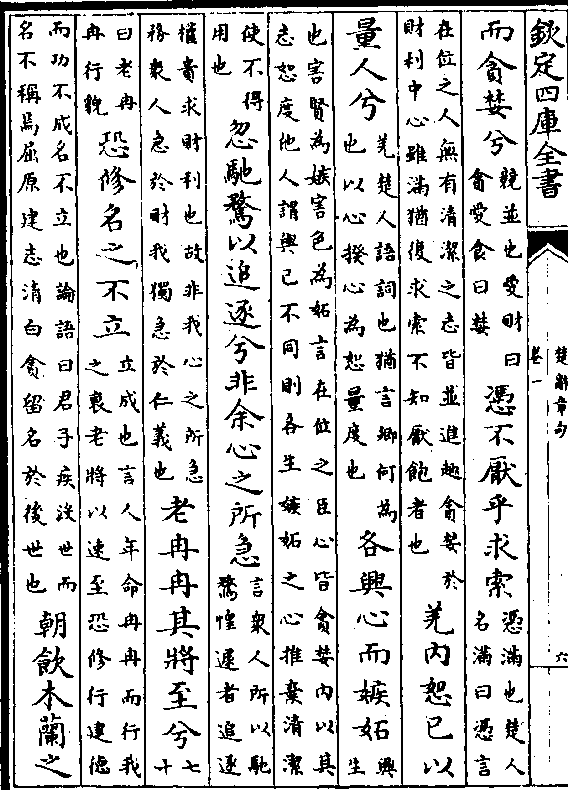 欽定四庫全書
楚辭章句
卷一
六
而貪婪兮
競並也愛財曰
貪愛食曰婪
憑不厭乎求索
憑滿也楚人
名滿曰憑言
在位之人無有清潔之志皆並進趣貪婪於
財利中心雖滿猶復求索不知厭飽者也
羌内恕已以
量人兮
羌楚人語詞也猶言卿何為
也以心揆心為恕量度也
各興心而嫉妬
興
生
也害賢為嫉害色為妬言在位之臣心皆貪婪内以其
志恕度他人謂與已不同則各生嫉妬之心推棄清潔
使不得
用也
忽馳騖以追逐兮非余心之所急
言衆人所以馳
騖惶遽者追逐
權貴求財利也故非我心之所急
務衆人急於財我獨急於仁義也
老冉冉其將至兮
七
十
曰老冉
冉行貌
恐修名之不立
立成也言人年命冉冉而行我
之衰老將以速至恐修行建德
而功不成名不立也論語曰君子疾没世而
名不稱焉屈原建志清白貪留名於後世也
朝飲木蘭之